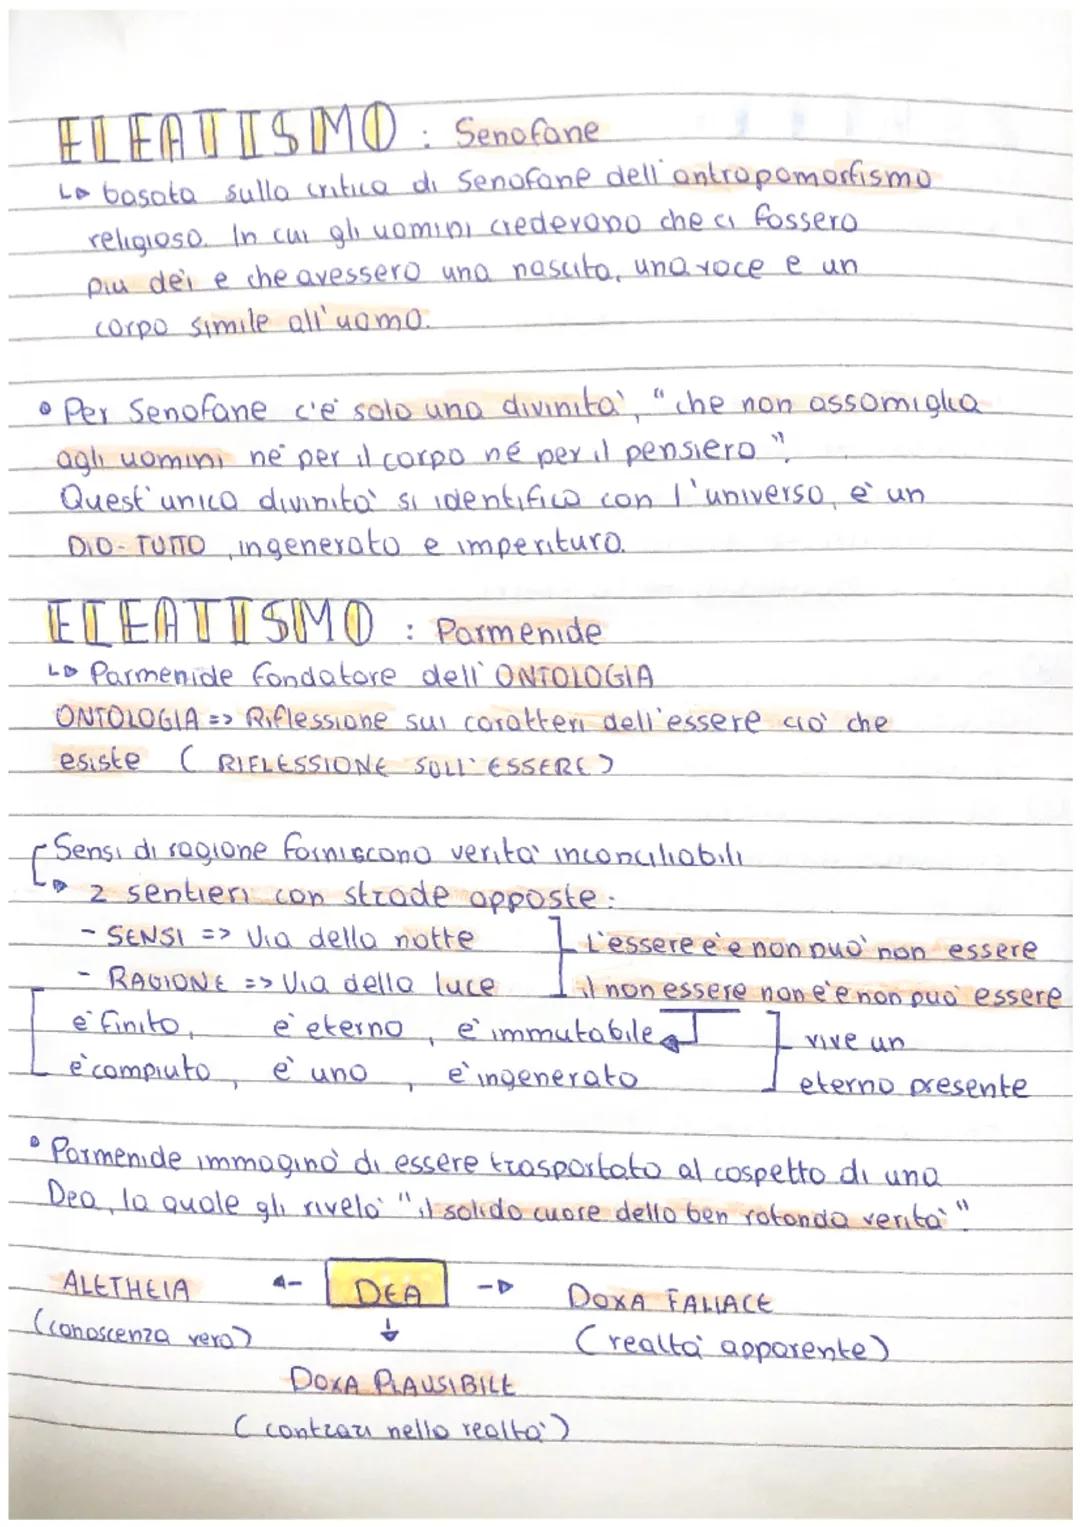 ELEATISMO : Senofane
↳ basata sulla critica di Senofane dell'antropomorfismo
religioso. In cui gli uomini credevano che ci fossero
più dèi e che avessero una nascita, una voce e un
corpo simile all'uomo.
• Per Senofane c'è solo una divinità, "che non assomiglia
agli uomini né per il corpo né per il pensiero".
Quest'unica divinità si identifica con l'universo, è un
DIO-TUTTO, ingenerato e imperituro.
ELEATISMO : Parmenide
↳ Parmenide fondatore dell'ONTOLOGIA
ONTOLOGIA => Riflessione sui caratteri dell'essere ciò che
esiste ( RIFLESSIONE SULL'ESSERE)
Sensi di ragione forniscono verità inconciliabili
↳ 2 sentieri con strade opposte:
- SENSI => Via della notte
L'essere è e non può non essere
- RAGIONE => Via della luce
il non essere non è e non può essere
è finito, è eterno, è immutabile
vive un
è compiuto, è uno, è ingenerato
eterno presente
• Parmenide immaginò di essere trasportato al cospetto di una
Dea, la quale gli rivelò "il solido cuore della ben rotonda verità"
ALETHEIA ← DEA → DOXA FALLACE
(conoscenza vera) ↓ (realtà apparente)
DOXA PLAUSIBILE
(contrari nella realtà)